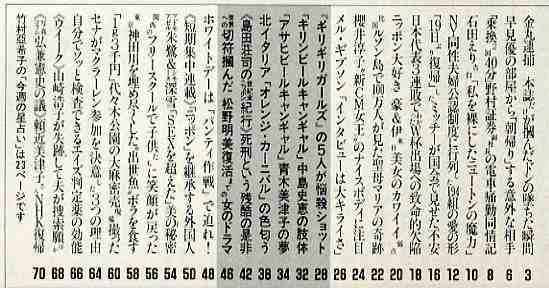 金丸逮捕 本誌が掴んだドンの墜ちた瞬間 3
早見優の部屋から「朝帰り」する意外な相手 6
〈乗換〉40分 野村証券 の電車痛勤同情記 8
石田えり「私を裸にしたニュートンの魔力」 10
NY同性夫婦公認制度に行列く 組の愛の形 12
「19日」復帰 "ミッチー"が国会で見せた不安 16
日本代表3連敗で W杯出場への致命的欠陥 18
ニッポン大好き 豪&伊 美女のカワイイ 20
比国 ルソン島で前万人が見た聖母マリアの奇跡 22
櫻井淳子 新CM女王のナイスボディに注目 24
メル・ギブソン「インタビューは大キライさ」 26
"ギリギリガールズ"の5人が悩殺ショット 28
"キリンビールキャンギャル"中島史恵の肢体 32
"アサヒビールキャンギャル"青木美津子の夢 34
北イタリア"オレンジ・カーニバル"の色匂う 36
〈島田荘司の世紀末紀行〉死刑という残酷の是非 38
復興への切符掴んだ 松野明美復活 女のドラマ 42
ホワイトデーは「パンティ作戦」で迫れ! 46
〈短期集中連載〉ニッポンを継承する外国人 48
朱鷺& 深雪「SEXを超えた」美の秘密 50
関西のフリースクールで子供に笑顔が戻った 54
東京 神田川を埋め尽くした"出世魚"ボラを食す 56
「1g3千円」代々木公園の大麻密売現場撮った 58
セナがマクラーレン参加を決意した3つの理由 60
自分でソッと検査できるエイズ判定薬の効能 64
"クイーン"山崎浩子が失踪して夫が捜索願 66
弘兼憲史の議 頼近美津子、NHK復帰 68
70
竹村亞希子の「今週の星占い」は23ページです